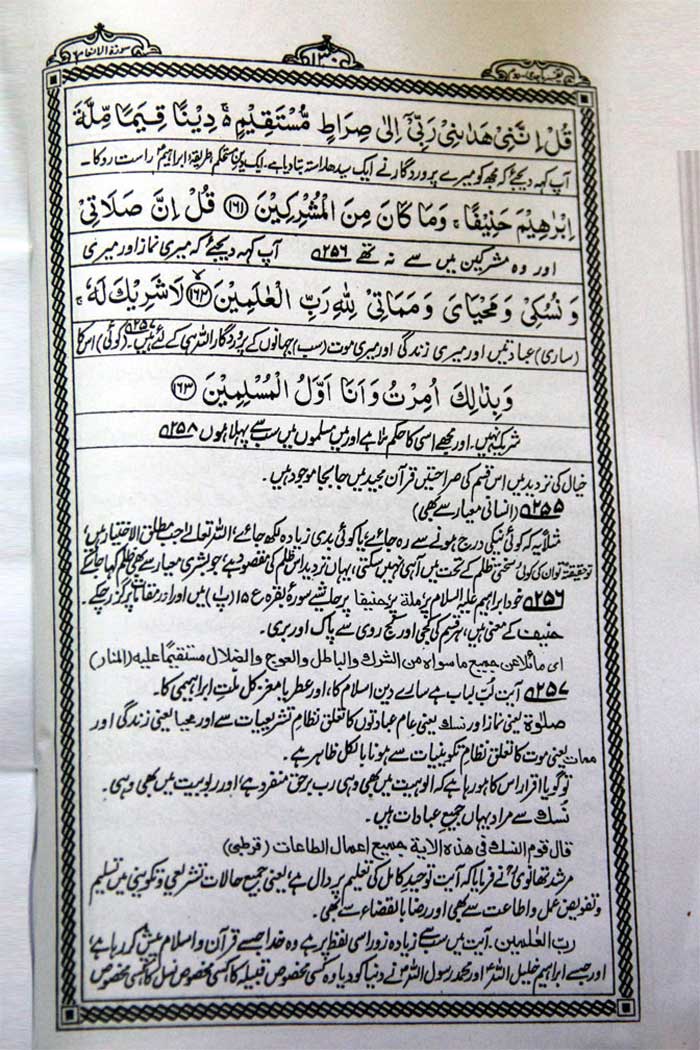 سورة الانعام ٦
١٣٠
تفسیر ماجدی
قُلْ اِنَّنِیْ هَدٰىنِیْ رَبِّیْۤ اِلٰى صِرَاطٍ مُّسْتَقِیْمٍ ۚ دِیْنًا قِیَمًا مِّلَّةَ
آپ کہہ دیجئے کہ مجھ کو میرے پروردگار نے ایک سیدھا راستہ بتا دیا ہے۔ ایک دین مستحکم طریقۂ ابراہیمؑ راست رو کا۔
اِبْرٰهِیْمَ حَنِیْفًا ۚ وَمَا كَانَ مِنَ الْمُشْرِكِیْنَ ﴿۱۶۱﴾ قُلْ اِنَّ صَلَاتِیْ
اور وہ مشرکین میں سے نہ تھے ۲۵۶ آپ کہہ دیجئے کہ میری نماز اور میری
وَ نُسُكِیْ وَ مَحْیَایَ وَ مَمَاتِیْ لِلّٰهِ رَبِّ الْعٰلَمِیْنَ ﴿۱۶۲﴾ لَا شَرِیْكَ لَهٗ ۚ
(ساری) عبادتیں اور میری زندگی اور میری موت (سب) جہانوں کے پروردگار اللہ ہی کے لئے ہیں۔ ۲۵۷ (کوئی) اس کا
وَ بِذٰلِكَ اُمِرْتُ وَ اَنَا اَوَّلُ الْمُسْلِمِیْنَ ﴿۱۶۳﴾
شریک نہیں۔ اور مجھے اسی کا حکم ملا ہے اور میں مسلموں میں سب سے پہلا ہوں ۲۵۸
خیال کی تردید میں اس قسم کی صراحتیں قرآن مجید میں جابجا موجود ہیں۔
۲۵۵ (انسانی معیار سے بھی)
مثلاً یہ کہ کوئی نیکی درج ہونے سے رہ جائے، یا کوئی بدی زیادہ لکھ جائے، اللہ تعالےٰ جب مطلق الاختیار ہیں،
تو حقیقۃً تو ان کی کوئی سختی ظلم کے تحت میں آ ہی نہیں سکتی، یہاں تردید اس ظلم کی مقصود ہے، جو بشری معیار سے بھی ظلم کہا جا سکے
۲۵۶ خود ابراہیم علیہ السلام پر، ملۃ پر حنیفا پر حاشیے سورۂ بقرہ ع ۱۵ (پ) میں اور اور مقامات پر گزر چکے۔
حنیف کے معنی ہیں، ہر قسم کی کجی اور کج روی سے پاک اور بری۔
ای مائلا عن جمیع ما سواه من الشرك والباطل والعوج والضلال مستقیما علیه (المنار)
۲۵۷ آیت لُبِ لباب ہے سارے دین اسلام کا، اور عطر یا مغز کل ملّتِ ابراہیمی کا۔
صلوۃ یعنی نماز اور نسک یعنی عام عبادتوں کا تعلق نظامِ تشریعیات سے اور محیا یعنی زندگی اور
ممات یعنی موت کا تعلق نظام تکوینیات سے ہونا بالکل ظاہر ہے۔
تو گویا اقرار اس کا ہو رہا ہے کہ الوہیت میں بھی وہی رب برحق منفرد ہے، اور ربوبیت میں بھی وہی۔
نسک سے مراد یہاں جمیع عبادات ہیں۔
قال قوم النسك فی هذه الایة جمیع اعمال الطاعات (قرطبی)
مرشد تھانویؒ نے فرمایا کہ آیت توحید کامل کی تعلیم پر دال ہے، یعنی جمیع حالات تشریعی و تکوینی میں تسلیم
و تفویض عمل و اطاعت سے بھی اور رضا بالقضاء سے بھی۔
رب العٰلمین۔ آیت میں سب سے زیادہ زور اسی لفظ پر ہے وہ خدا جسے قرآن و اسلام پیش کر رہا ہے،
اور جسے ابراہیم خلیل اللہؑ اور محمد رسول اللہؐ نے دنیا کو دیا وہ کسی مخصوص قبیلہ کا، کسی مخصوص نسل کا، کسی مخصوص